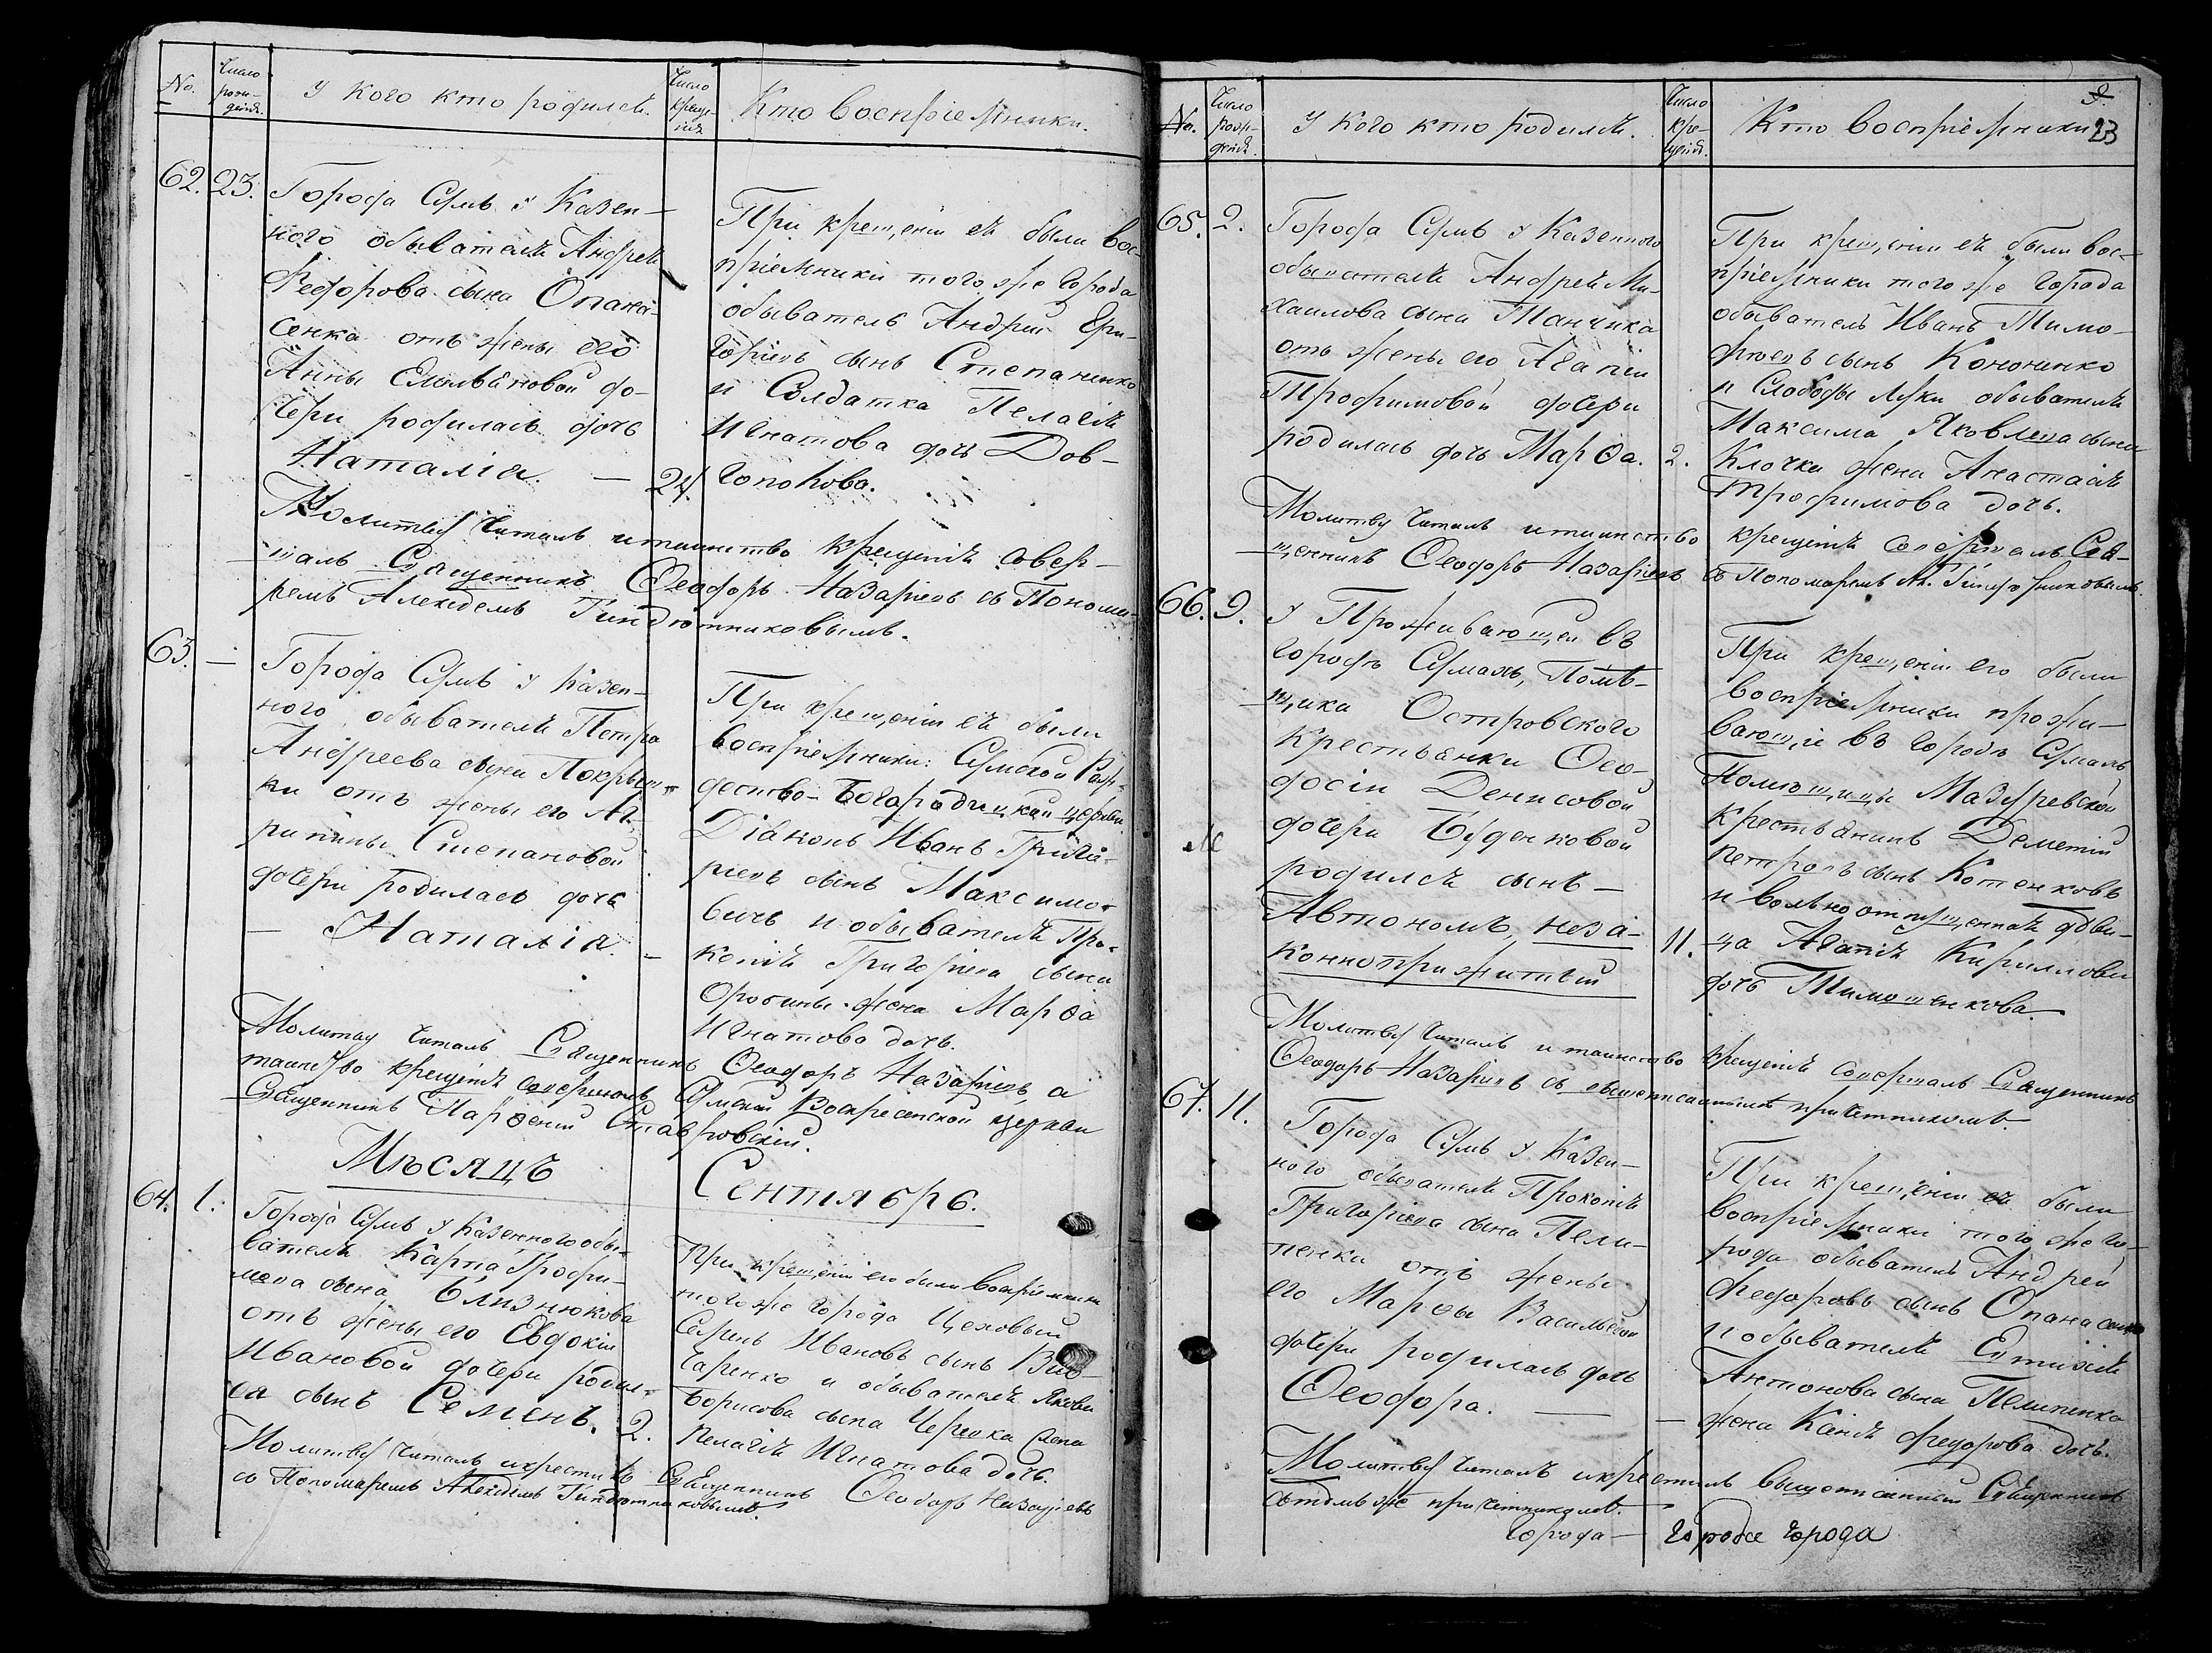 No.
Число рож-
денія.
У кого кто родился.
Число
креще-
нія
Кто воспріемники.
62. 23.
Города Сумъ у Казен-
ного обывателя Андрея
Федорова сына Опана-
сенка отъ жены его
Анны Емельяновой до-
чери родилась дочь
Наталія. — 24.
При крещеніи ея были вос-
пріемники того же города
обыватель Андрій Гри-
горіевъ сынъ Степаненко
и Солдатка Пелагія
Игнатова дочь Дов-
гополова.
Молитву читалъ и таинство крещенія совер-
шалъ Священникъ Ѳеодоръ Назаріевъ съ Понома-
ремъ
63. —
Города Сумъ у Казен-
ного обывателя Петра
Андреева сына
ки отъ жены его Аг-
рипины Степановой
дочери родилась дочь
— Наталія. —
При крещеніи ея были
воспріемники: Сумской Рож-
дество-Богородицкой церкви
Діаконъ Иванъ Григо-
ріевъ сынъ Максимо-
вичъ и обывателя Про-
копія Григоріева сына
жена Марѳа
Игнатова дочь.
Молитву читалъ Священникъ Ѳеодоръ Назаріевъ, а
таинство крещенія совершилъ Сумской Воскресенской церкви
Священникъ Парѳеній Ставровскій.
Мѣсяцъ Сентябрь.
64. 1.
Города Сумъ у Казенного обы-
вателя Карпа Трофи-
мова сына Близнюкова
отъ жены его Евдокіи
Ивановой дочери родил-
ся сынъ Семенъ. 2.
При крещеніи его были воспріемники
того же города Цеховый
Ивановъ сынъ
и обывателя Якова
Борисова сына жена
Пелагія Игнатова дочь.
Молитву читалъ и крестилъ Священникъ Ѳеодоръ Назаріевъ
съ Пономаремъ
No.
Число
рож-
денія.
У кого кто родился.
Число
кре-
щенія.
Кто воспріемники
9.
23
65. 2.
Города Сумъ у Казенного
обывателя Андрея Ми-
хаилова сына Танчика
отъ жены его Агапіи
Трофимовой дочери
родилась дочь Марѳа. 2.
При крещеніи ея были вос-
пріемники того же города
обыватель Иванъ Тимо-
фѣевъ сынъ Кононенко
и Слободы Луки обывателя
Максима Яковлева сына
Клочка жена Анастасія
Трофимова дочь.
Молитву читалъ и таинство крещенія совершалъ Свя-
щенникъ Ѳеодоръ Назаріевъ съ Пономаремъ
66. 9.
У Проживающей въ
городѣ Сумахъ, Помѣ-
щика Островского
крестьянки Ѳео-
досіи Денисовой
дочери Буденковой
родился сынъ —
Автономъ, неза-
конноприжитый 11.
М
При крещеніи его были
воспріемники прожи-
вающіе въ городѣ Сумахъ
Помѣщицы Мазуревской
крестьянинъ Деметій
Петровъ сынъ Котенковъ
и вольноотпущенная дѣви-
ца Агапія Кириллова
дочь Тимошенкова.
Молитву читалъ и таинство крещенія совершалъ Священникъ
Ѳеодоръ Назаріевъ съ вышеписаннымъ причетникомъ
67. 11.
Города Сумъ у Казен-
ного обывателя Прокопія
Григоріева сына Пели-
пенка отъ жены
его Марѳы Васильевой
дочери родилась дочь
Ѳеодора. — —
При крещеніи ея были
воспріемники того же го-
рода обыватель Андрей
Федоровъ сынъ Опанасенко
и обывателя Евтихія
Антонова сына Пелипенка
жена Ксенія Федорова дочь.
Молитву читалъ и крестилъ вышеписанный Священникъ
съ тѣмъ же причетникомъ.
Города — Городсе города